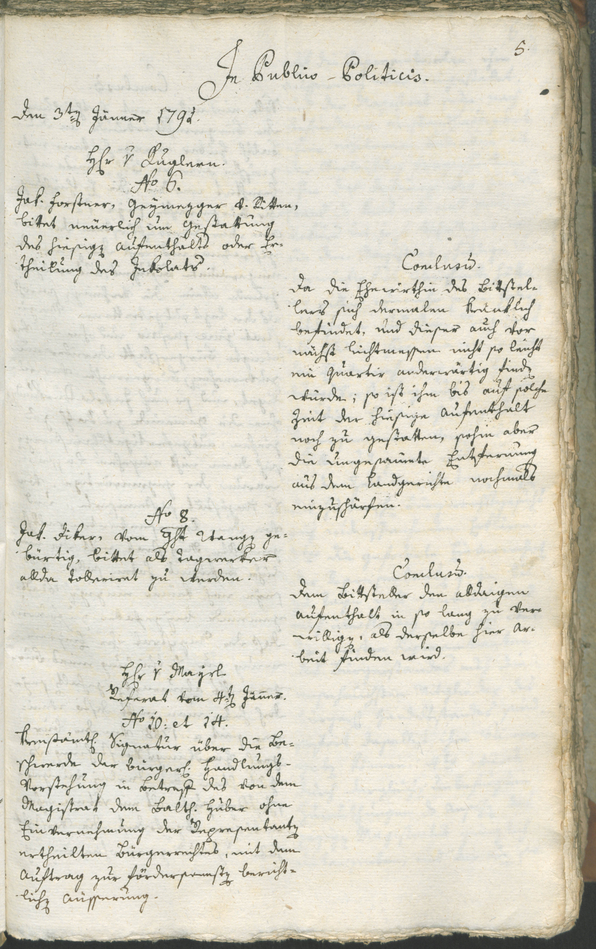 5.
In Publico-Politicis.
Den 3tn Jänner 1791.
Hhr v Kuglern.
No 6.
Jak. Forstner, Geymezger v. Ritten,
bittet neuerlich um Gestattung
des hiesign Aufenthalts oder Er-
theilung des Inkolats.
Conclusu.
Da die Ehewirthin des Bittstel-
lers sich dermalen kränklich
befindet, und dieser auch vor
nächst Lichtmessen nicht so leicht
ein Quartir anderwärtig findn
würde; so ist ihm bis auf solche
Zeit der hiesige Aufenthalt
noch zu gestatten, sohin aber
die ungesäumte Entfernung
aus dem Landgerichte nochmals
einzuschärfen.
No 8.
Jak. Dibar, vom Ght Wangn ge-
bürtig, bittet als Tagwerker
allda tollerirt zu werden.
Conclusu.
Dem Bittsteller den alldaigen
Aufenthalt in so lang zu ver-
willign, als derselbe hier Ar-
beit finden wird.
Hhr v Mayrl
Referat vom 4tn Jänner.
No 10: et 14.
Kreisämtl. Signatur über die Be-
schwerde der bürgerl. Handlungs-
Vorstehung in betreff des von dem
Magistrat dem Balth. Huber ohne
Einvernehmung der Representantn
ertheilten Bürgerrechtes, mit dem
Auftrag zur fördersamstn bericht-
lichn Äusserung.